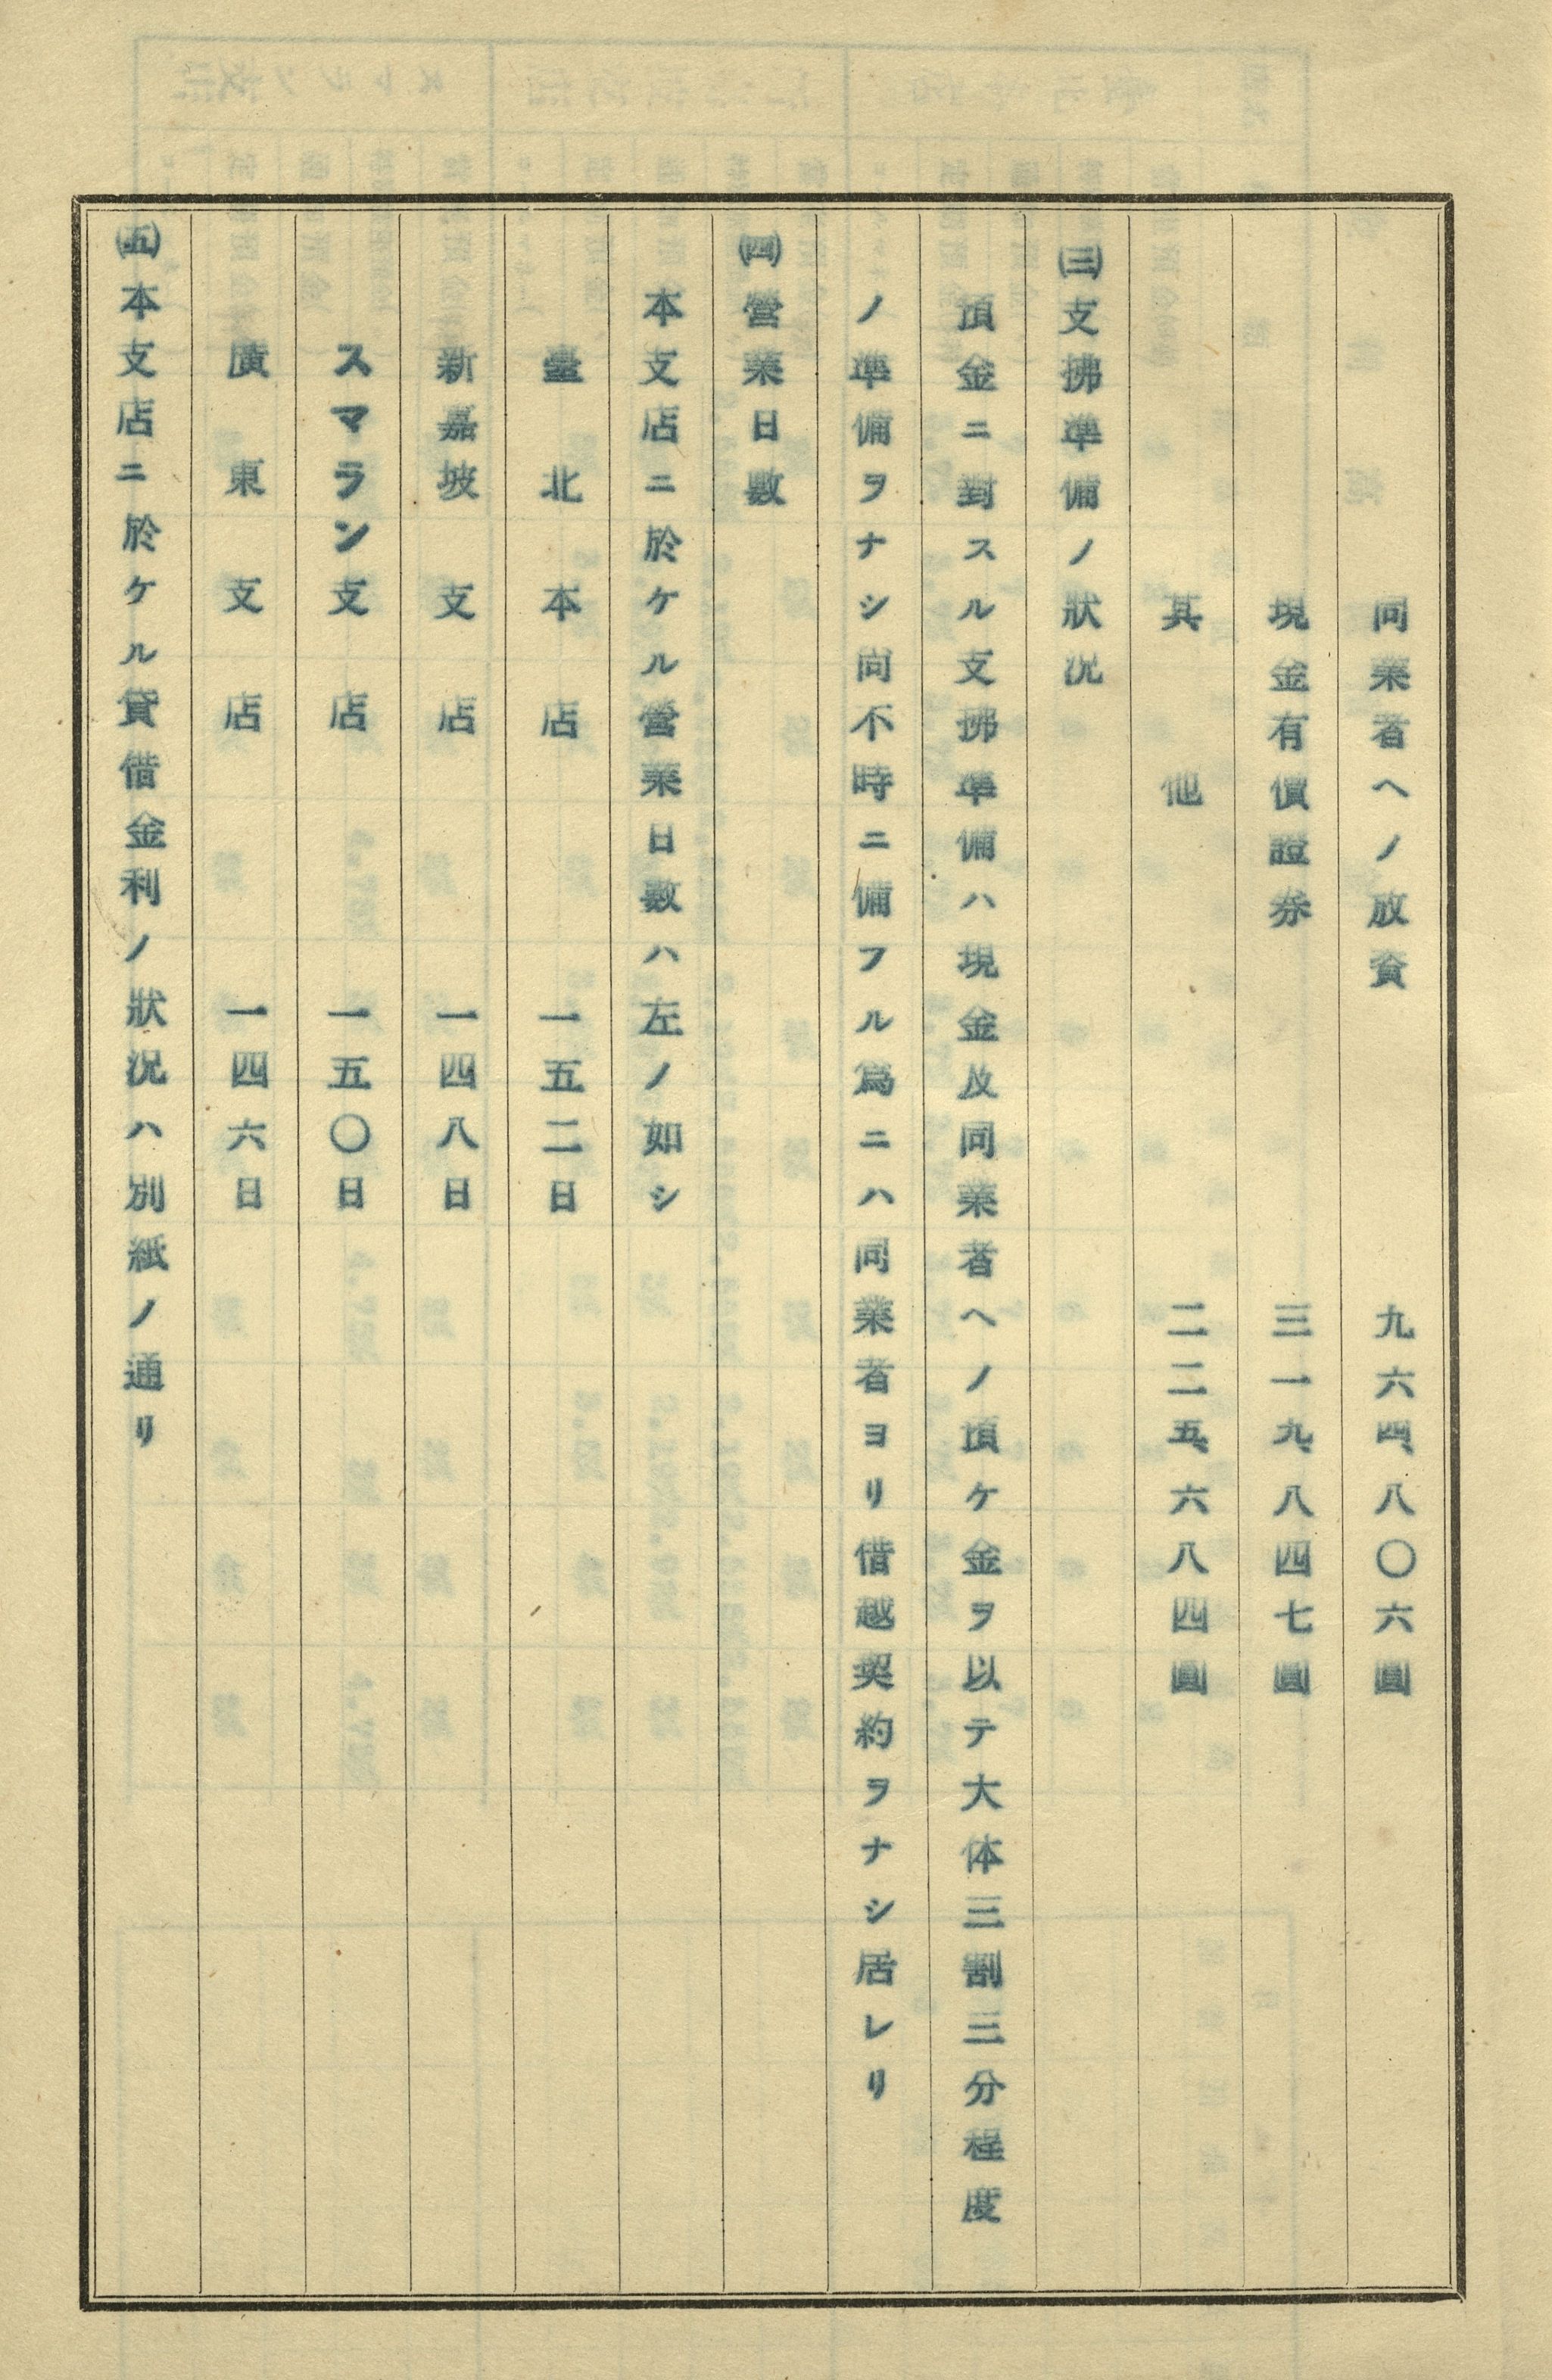 同業者ヘノ放資 九六四、八〇六圓
現金有價證券 三一九、八四七圓
其他 二二五、六八四圓
㈢支拂準備ノ狀況
預金ニ對スル支拂準備ハ現金及同業者ヘノ預ケ金ヲ以テ大体三割三分程度
ノ準備ヲナシ尙不時ニ備フル爲ニハ同業者ヨリ借越契約ヲナシ居レリ
㈣營業日數
本支店ニ於ケル營業日數ハ左ノ如シ
臺北本店 一五二日
新嘉坡支店 一四八日
スマラン支店 一五〇日
廣東支店 一四六日
㈤本支店ニ於ケル貸借金利ノ狀況ハ別紙ノ通リ